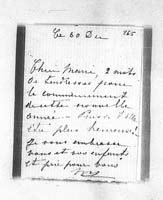 Ce 30 Dec
165
Chère Marie, 2 mots
de tendresse pour
le commencement
de cette nouvelle
année. Puisse-t-elle
être plus heureuse!
Je vous embrasse
vous et vos enfants
et prie pour vous